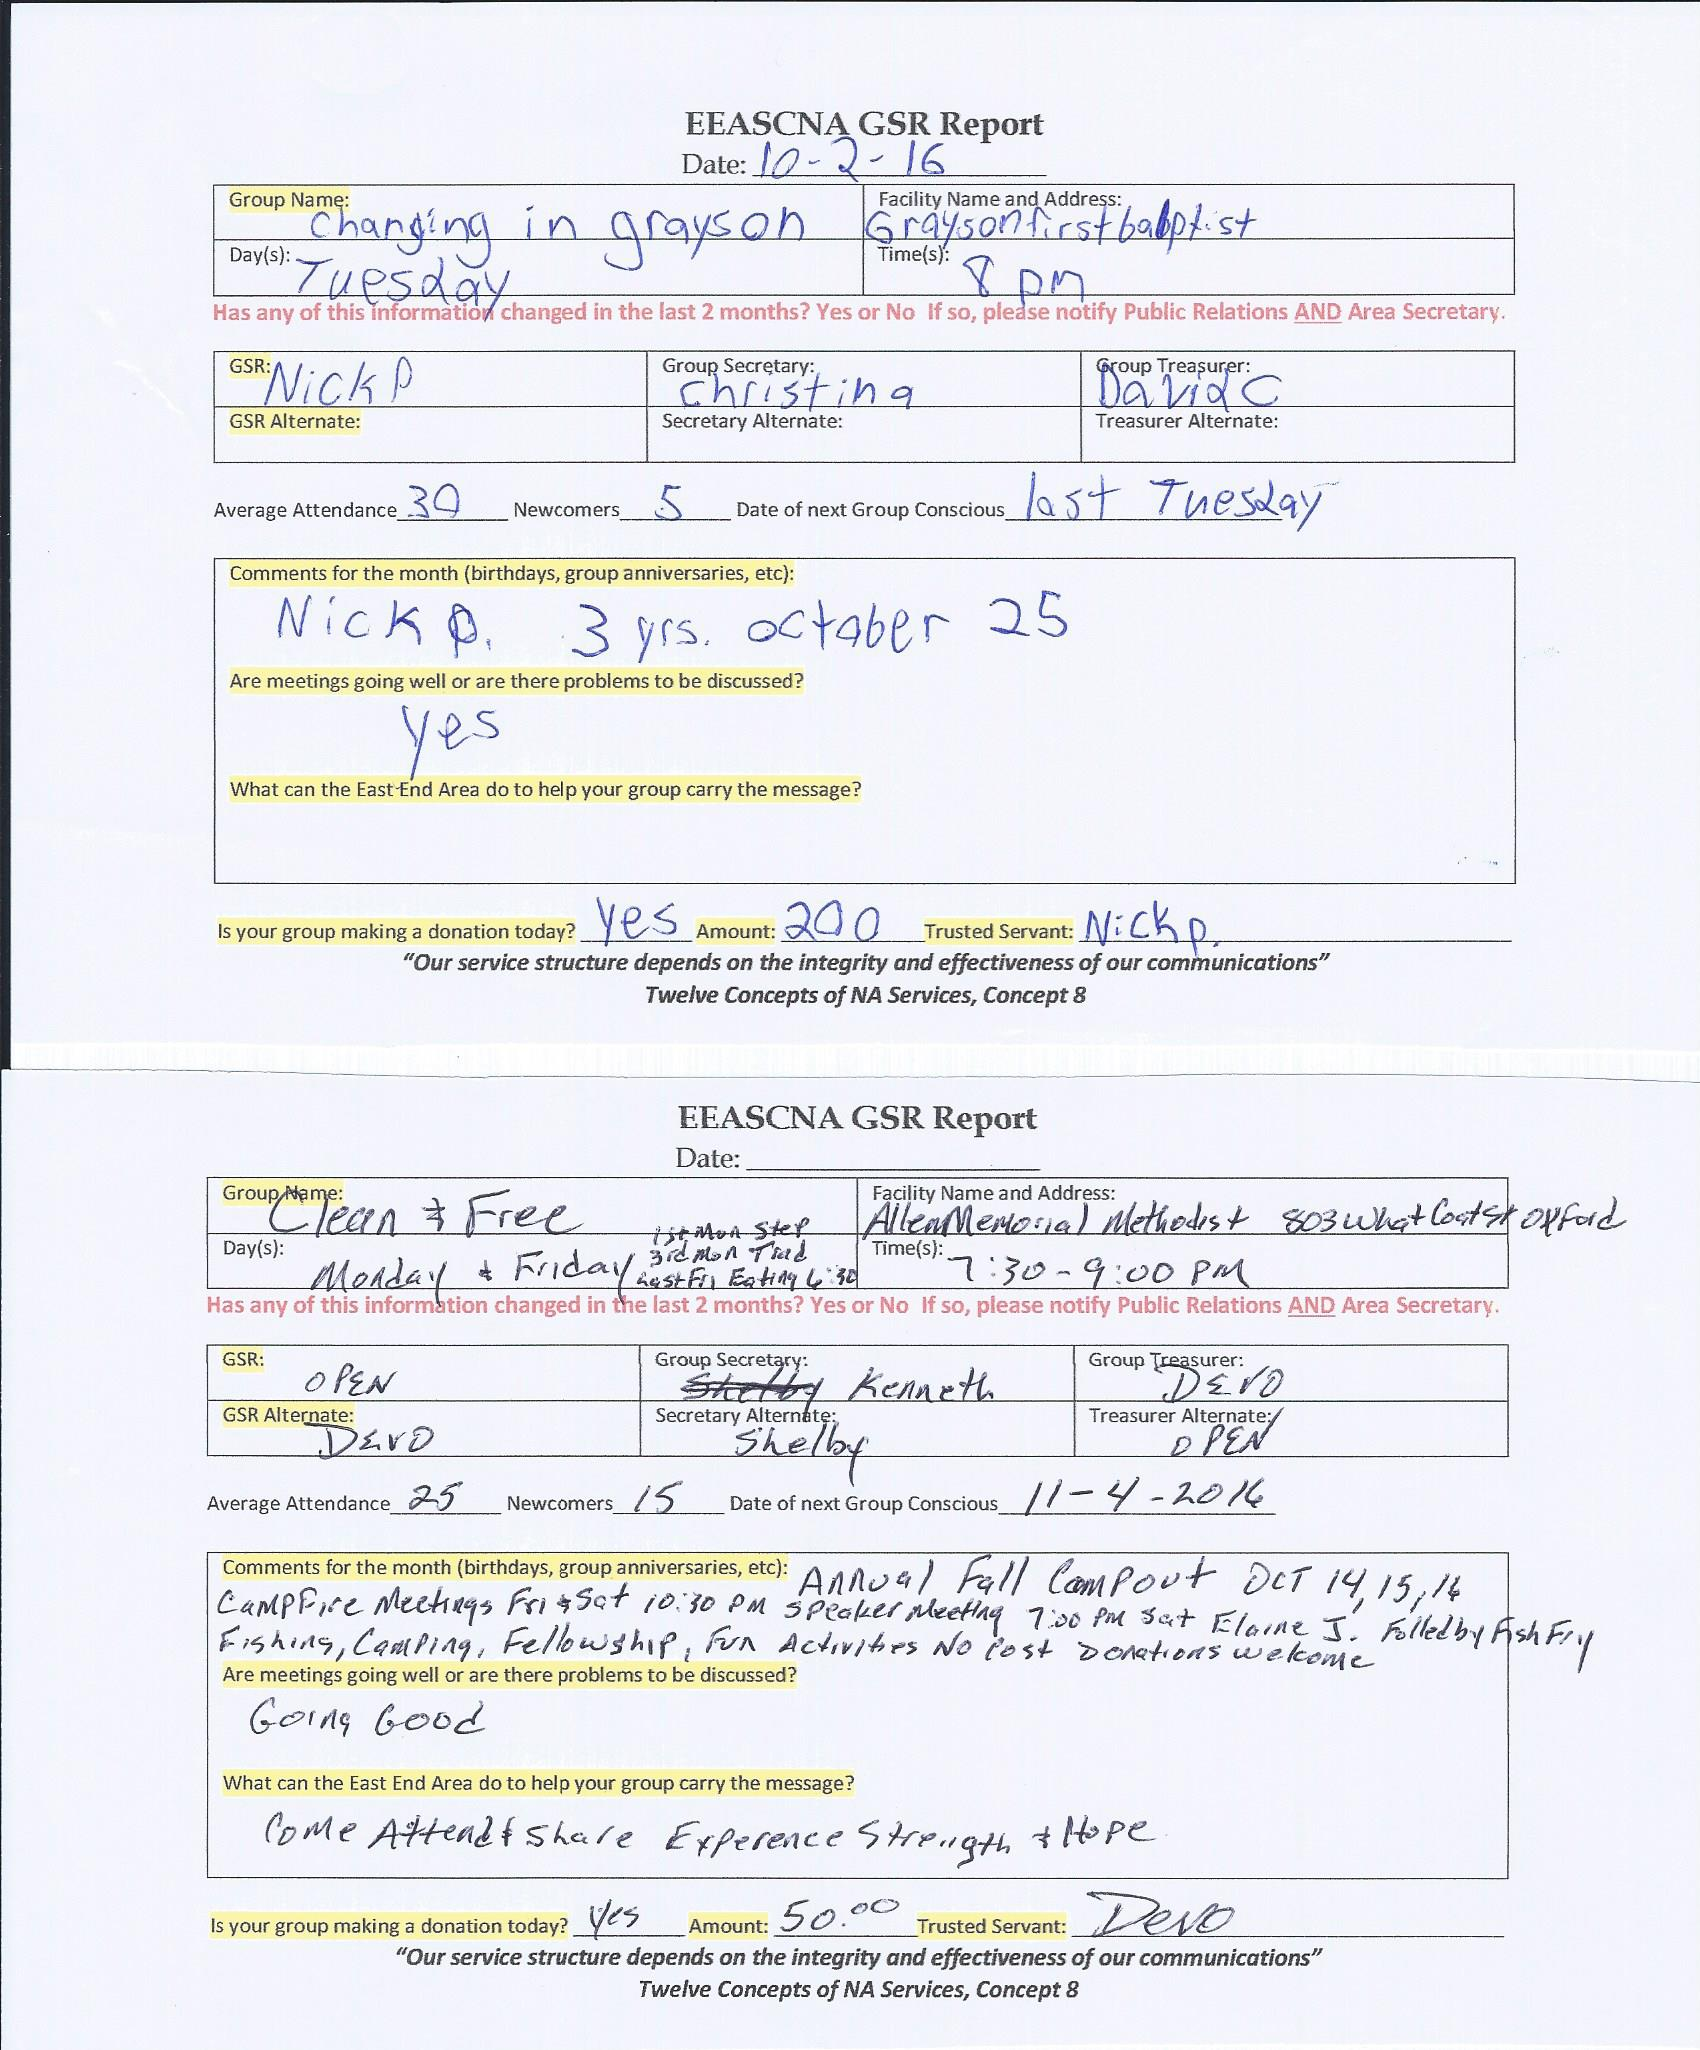 EEASCNA GSR Report
Date: 10-2-16
Group Name: Changing in grayson
Facility Name and Address: Grayson first babptist
Day(s): Tuesday
Time(s): 8 pm
Has any of this information changed in the last 2 months? Yes or No If so, please notify Public Relations AND Area Secretary.
GSR: Nick P
Group Secretary: Christina
Group Treasurer: David C
GSR Alternate:
Secretary Alternate:
Treasurer Alternate:
Average Attendance 30 Newcomers 5 Date of next Group Conscious last Tuesday
Comments for the month (birthdays, group anniversaries, etc):
Nick p. 3 yrs. october 25
Are meetings going well or are there problems to be discussed?
yes
What can the East End Area do to help your group carry the message?
Is your group making a donation today? yes Amount: 200 Trusted Servant: Nick p.
"Our service structure depends on the integrity and effectiveness of our communications"
Twelve Concepts of NA Services, Concept 8
EEASCNA GSR Report
Date:
Group Name: Clean & Free
Facility Name and Address: Allen Memorial Methodist 803 What Coat St Oxford
Day(s): Monday & Friday
1st Mon Step
3rd Mon Trad
Last Fri Eating 6:30
Time(s): 7:30-9:00 PM
Has any of this information changed in the last 2 months? Yes or No If so, please notify Public Relations AND Area Secretary.
GSR: OPEN
Group Secretary: Shelby Kenneth
Group Treasurer: DEVO
GSR Alternate: DEVO
Secretary Alternate: Shelby
Treasurer Alternate: OPEN
Average Attendance 25 Newcomers 15 Date of next Group Conscious 11-4-2016
Comments for the month (birthdays, group anniversaries, etc): Annual Fall Campout OCT 14,15,16
CampFire Meetings Fri & Sat 10:30 PM Speaker Meeting 7:00 PM Sat Elaine J. Folled by Fish Fry
Fishing, Camping, Fellowship, Fun Activities No Cost Donations welcome
Are meetings going well or are there problems to be discussed?
Going Good
What can the East End Area do to help your group carry the message?
Come Attend & Share Experence Strength & Hope
Is your group making a donation today? yes Amount: 50.00 Trusted Servant: Devo
"Our service structure depends on the integrity and effectiveness of our communications"
Twelve Concepts of NA Services, Concept 8